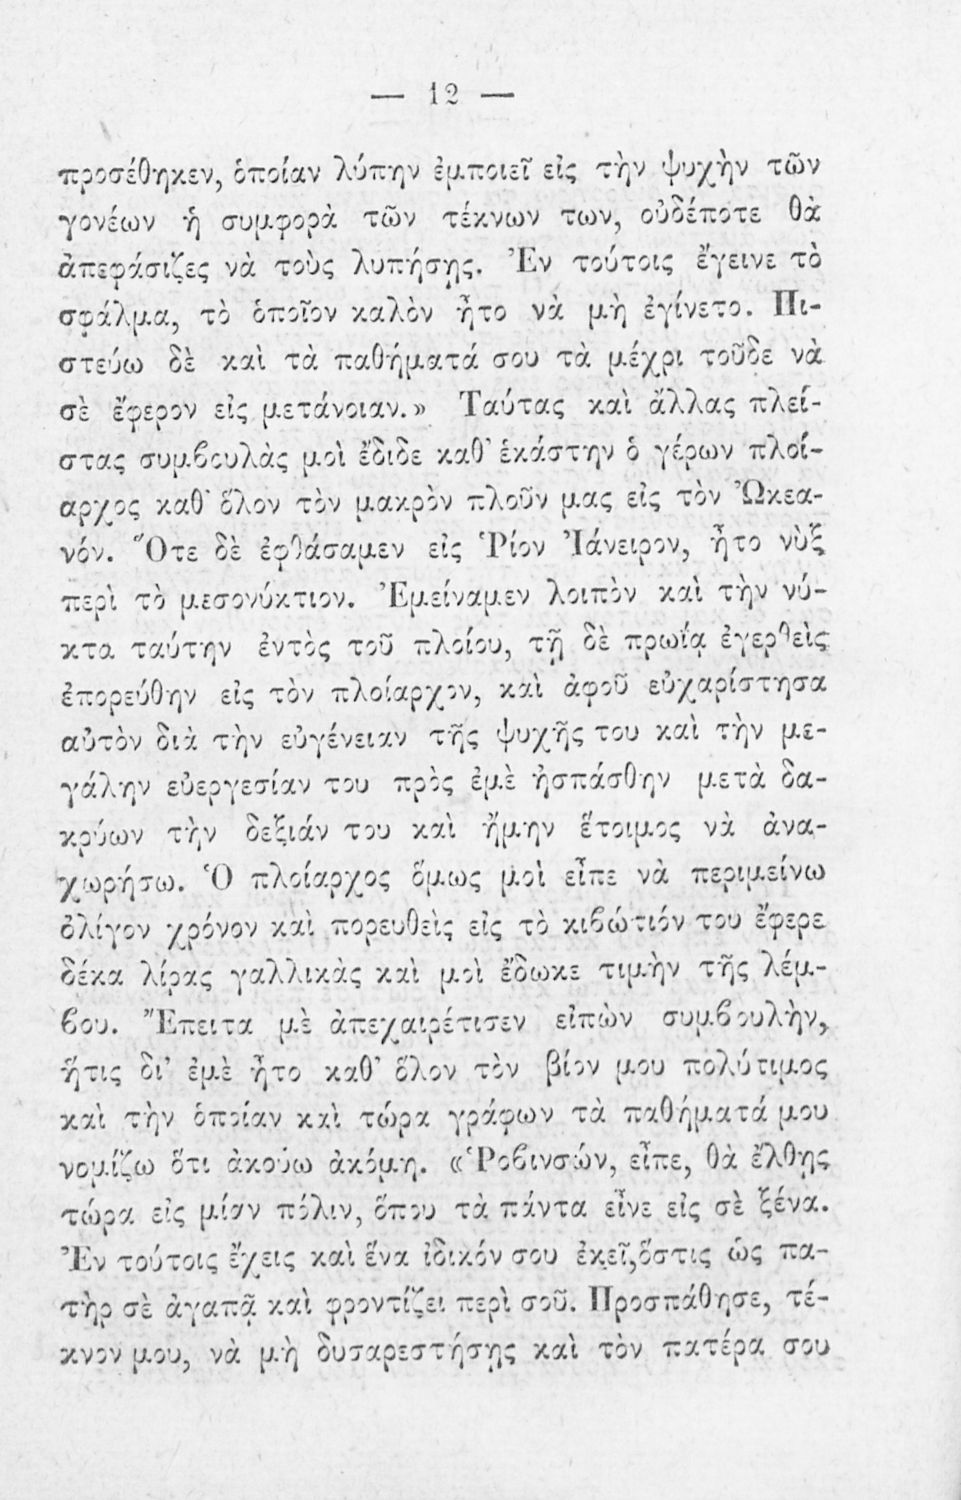 — 12 —
προσέθηκεν, ὁποίαν λύπην ἐμποιεῖ εἰς τὴν ψυχὴν τῶν
γονέων ἡ συμφορὰ τῶν τέκνων των, οὐδέποτε θὰ
ἀπεφάσιζες νὰ τοὺς λυπήσῃς. Ἐν τούτοις ἔγεινε τὸ
σφάλμα, τὸ ὁποῖον καλὸν ἦτο νὰ μὴ ἐγίνετο. Πι-
στεύω δὲ καὶ τὰ παθήματά σου τὰ μέχρι τοῦδε νὰ
σὲ ἔφερον εἰς μετάνοιαν.» Ταύτας καὶ ἄλλας πλεί-
στας συμβουλὰς μοὶ ἔδιδε καθ' ἑκάστην ὁ γέρων πλοί-
αρχος καθ' ὅλον τὸν μακρὸν πλοῦν μας εἰς τὸν Ὠκεα-
νόν. Ὅτε δὲ ἐφθάσαμεν εἰς Ῥίον Ἰάνειρον, ἦτο νὺξ
περὶ τὸ μεσονύκτιον. Ἐμείναμεν λοιπὸν καὶ τὴν νύ-
κτα ταύτην ἐντὸς τοῦ πλοίου, τῇ δὲ πρωΐᾳ ἐγερθεὶς
ἐπορεύθην εἰς τὸν πλοίαρχον, καὶ ἀφοῦ εὐχαρίστησα
αὐτὸν διὰ τὴν εὐγένειαν τῆς ψυχῆς του καὶ τὴν με-
γάλην εὐεργεσίαν του πρὸς ἐμὲ ἠσπάσθην μετὰ δα-
κρύων τὴν δεξιάν του καὶ ἤμην ἕτοιμος νὰ ἀνα-
χωρήσω. Ὁ πλοίαρχος ὅμως μοὶ εἶπε νὰ περιμείνω
ὀλίγον χρόνον καὶ πορευθεὶς εἰς τὸ κιβώτιόν του ἔφερε
δέκα λίρας γαλλικὰς καὶ μοὶ ἔδωκε τιμὴν τῆς λέμ-
βου. Ἔπειτα μὲ ἀπεχαιρέτισεν εἰπὼν συμβουλὴν,
ἥτις δι' ἐμὲ ἦτο καθ' ὅλον τὸν βίον μου πολύτιμος
καὶ τὴν ὁποίαν καὶ τώρα γράφων τὰ παθήματά μου
νομίζω ὅτι ἀκούω ἀκόμη. «Ῥοβινσών, εἶπε, θὰ ἔλθῃς
τώρα εἰς μίαν πόλιν, ὅπου τὰ πάντα εἶνε εἰς σὲ ξένα.
Ἐν τούτοις ἔχεις καὶ ἕνα ἰδικόν σου ἐκεῖ, ὅστις ὡς πα-
τὴρ σὲ ἀγαπᾷ καὶ φροντίζει περὶ σοῦ. Προσπάθησε, τέ-
κνον μου, νὰ μὴ δυσαρεστήσῃς καὶ τὸν πατέρα σου